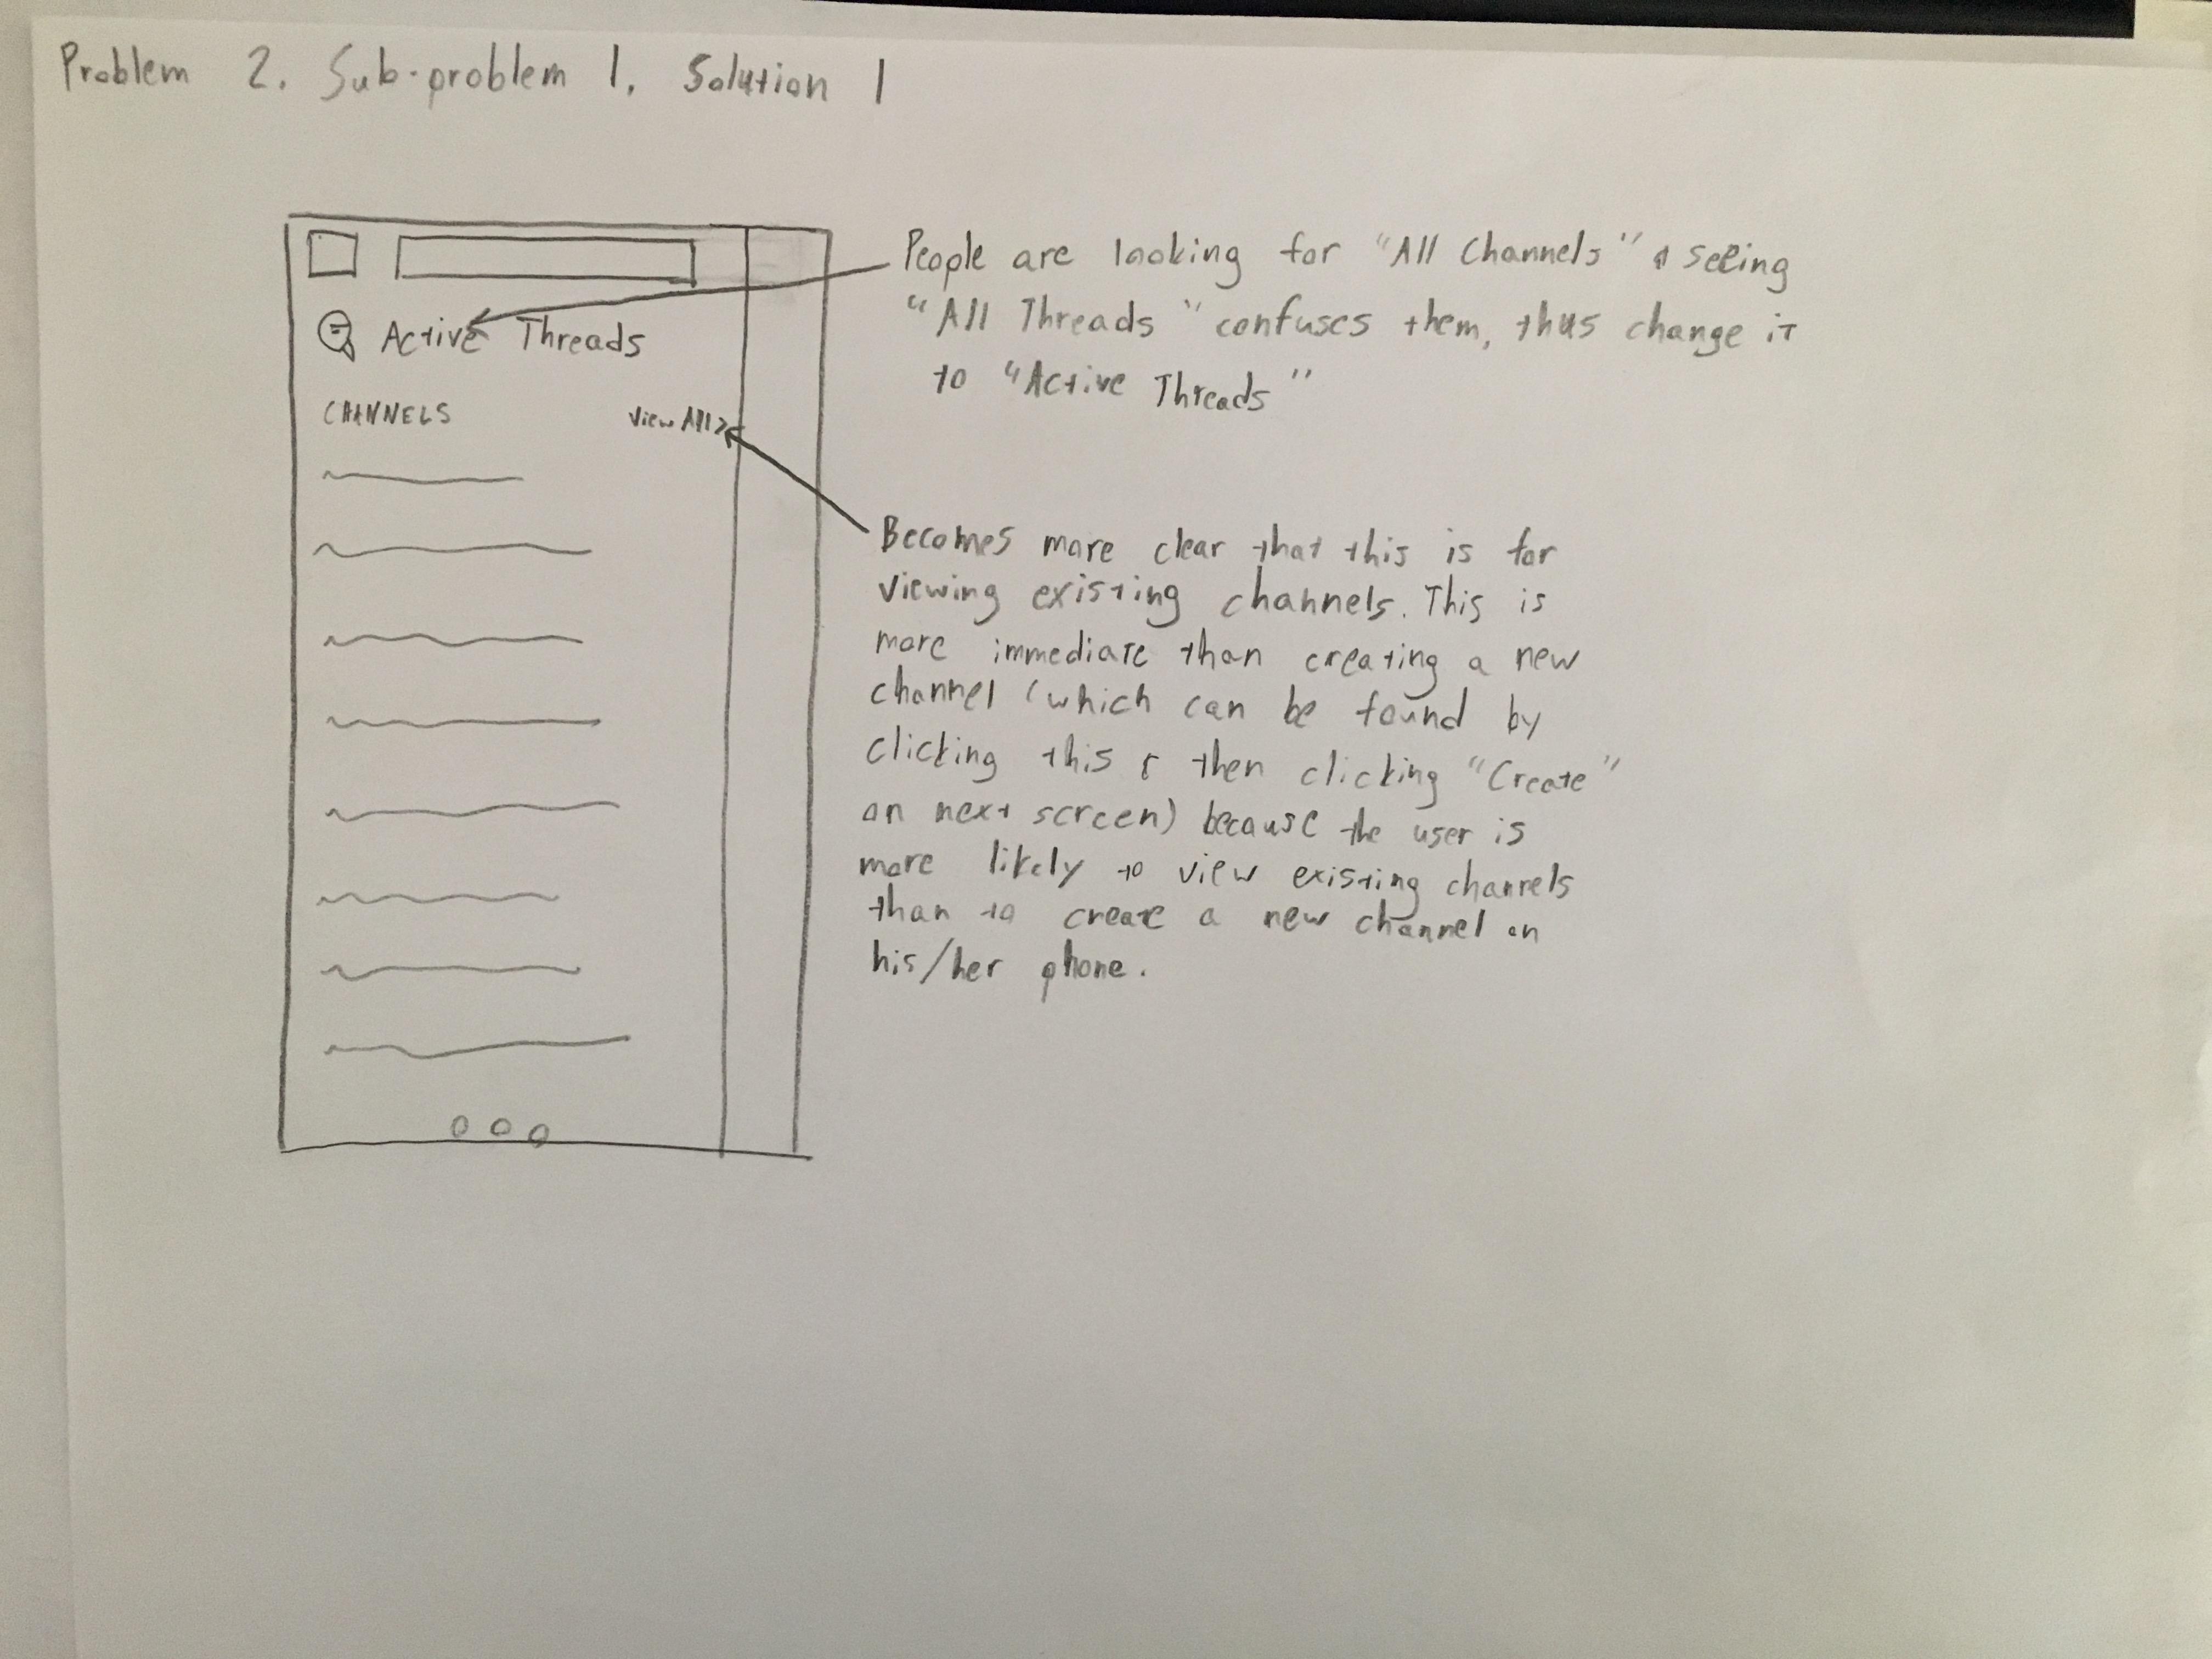 Problem 2. Sub-problem 1, Solution 1
People are looking for "All Channels" & seeing
"All Threads" confuses them, thus change it
to "Active Threads"
Active Threads
CHANNELS View All >
Becomes more clear that this is for
viewing existing channels. This is
more immediate than creating a new
channel (which can be found by
clicking this & then clicking "Create"
on next screen) because the user is
more likely to view existing channels
than to create a new channel on
his/her phone.